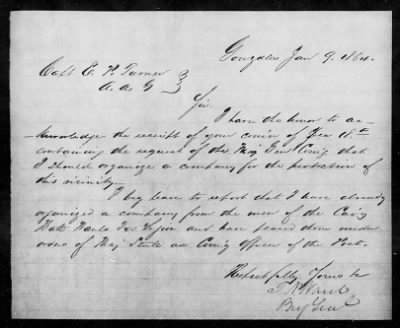 Gonzales Jan 9. 1864.
Capt E. P. Turner
A. A. G
Sir
I have the honor to ac-
knowledge the receipt of your of
containing the request of the Maj Gen Comg that
I should organize a company for the protection of
this vicinity
I beg leave to report that I have already
organized a company from the men of the
Wauls Tex Legion and have them under
orders of Maj Steele as Comg Officer of the Post.
Respectfully Yours &c
Brig Genl